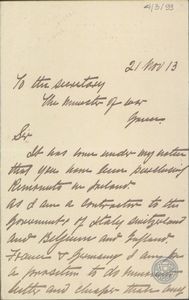 4/3/99
21 Nov 13
To the secretary
The minister of war
Sir
It has come under my notice
that you have been purchasing
Remounts in Ireland
As I am a contractor to the
Governments of Italy Switzerland
and Belgium and England
France & Germany I am in
a position to do business
better and cheaper than any